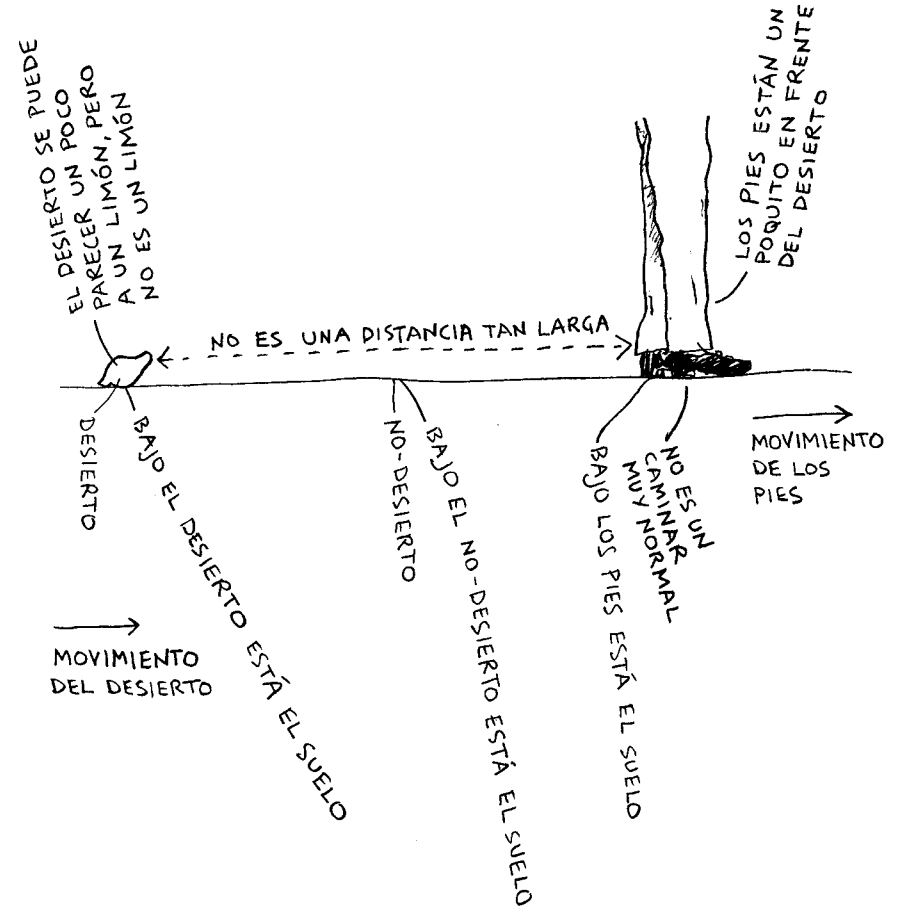 EL DESIERTO SE PUEDE
PARECER UN POCO
A UN LIMÓN, PERO
NO ES UN LIMÓN
LOS PIES ESTÁN UN
POQUITO EN FRENTE
DEL DESIERTO
NO ES UNA DISTANCIA TAN LARGA
DESIERTO
BAJO EL DESIERTO ESTÁ EL SUELO
NO-DESIERTO
BAJO EL NO-DESIERTO ESTÁ EL SUELO
BAJO LOS PIES ESTÁ EL SUELO
NO ES UN
CAMINAR
MUY NORMAL
MOVIMIENTO
DE LOS
PIES
MOVIMIENTO
DEL DESIERTO